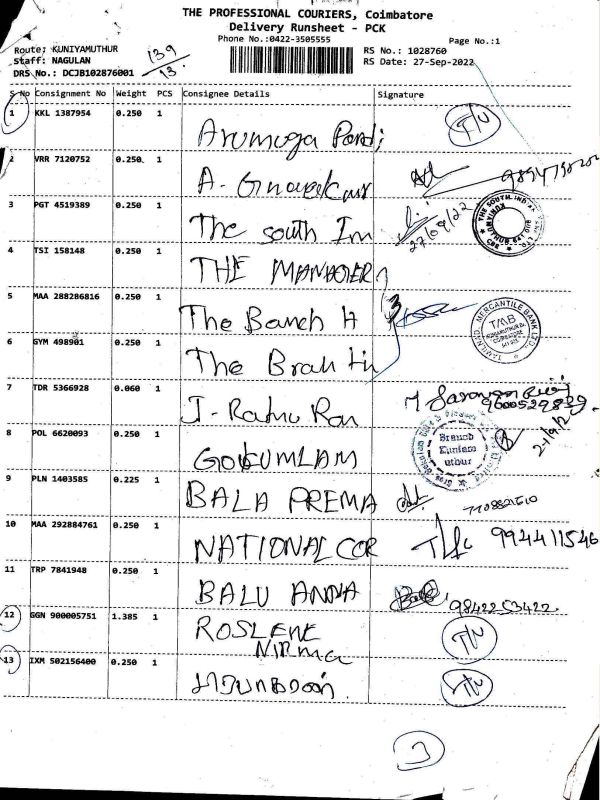 THE PROFESSIONAL COURIERS, Coimbatore
Delivery Runsheet - PCK
Phone No.:0422-3505555
Page No.:1
Route: KUNIYAMUTHUR
Staff: NAGULAN
DRS No.: DCJB102876001
139
13
RS No.: 1028760
RS Date: 27-Sep-2022
S No Consignment No Weight PCS Consignee Details Signature
1 KKL 1387954 0.250 1 Arumuga T/U
2 VRR 7120752 0.250 1 A.
3 PGT 4519389 0.250 1 The south In 27/09/22
4 TSI 158148 0.250 1 THE MANAGER
5 MAA 288286816 0.250 1 The Banch H
6 GYM 498901 0.250 1 The
TAMILNAD MERCANTILE BANK LTD.
TMB
7 TDR 5366928 0.060 1 J. 9000529839
8 POL 6620093 0.250 1 GOKUMLAM
Branch
Kuniam
uthur
9 PLN 1403585 0.225 1 BALA PREMA
10 MAA 292884761 0.250 1 NATIONAL COR 994411546
11 TRP 7841948 0.250 1 BALU ANNA 9842253422
12 GGN 900005751 1.385 1 ROSLENE T/U
NIRMA
13 IXM 502156400 0.250 1 T/U
3